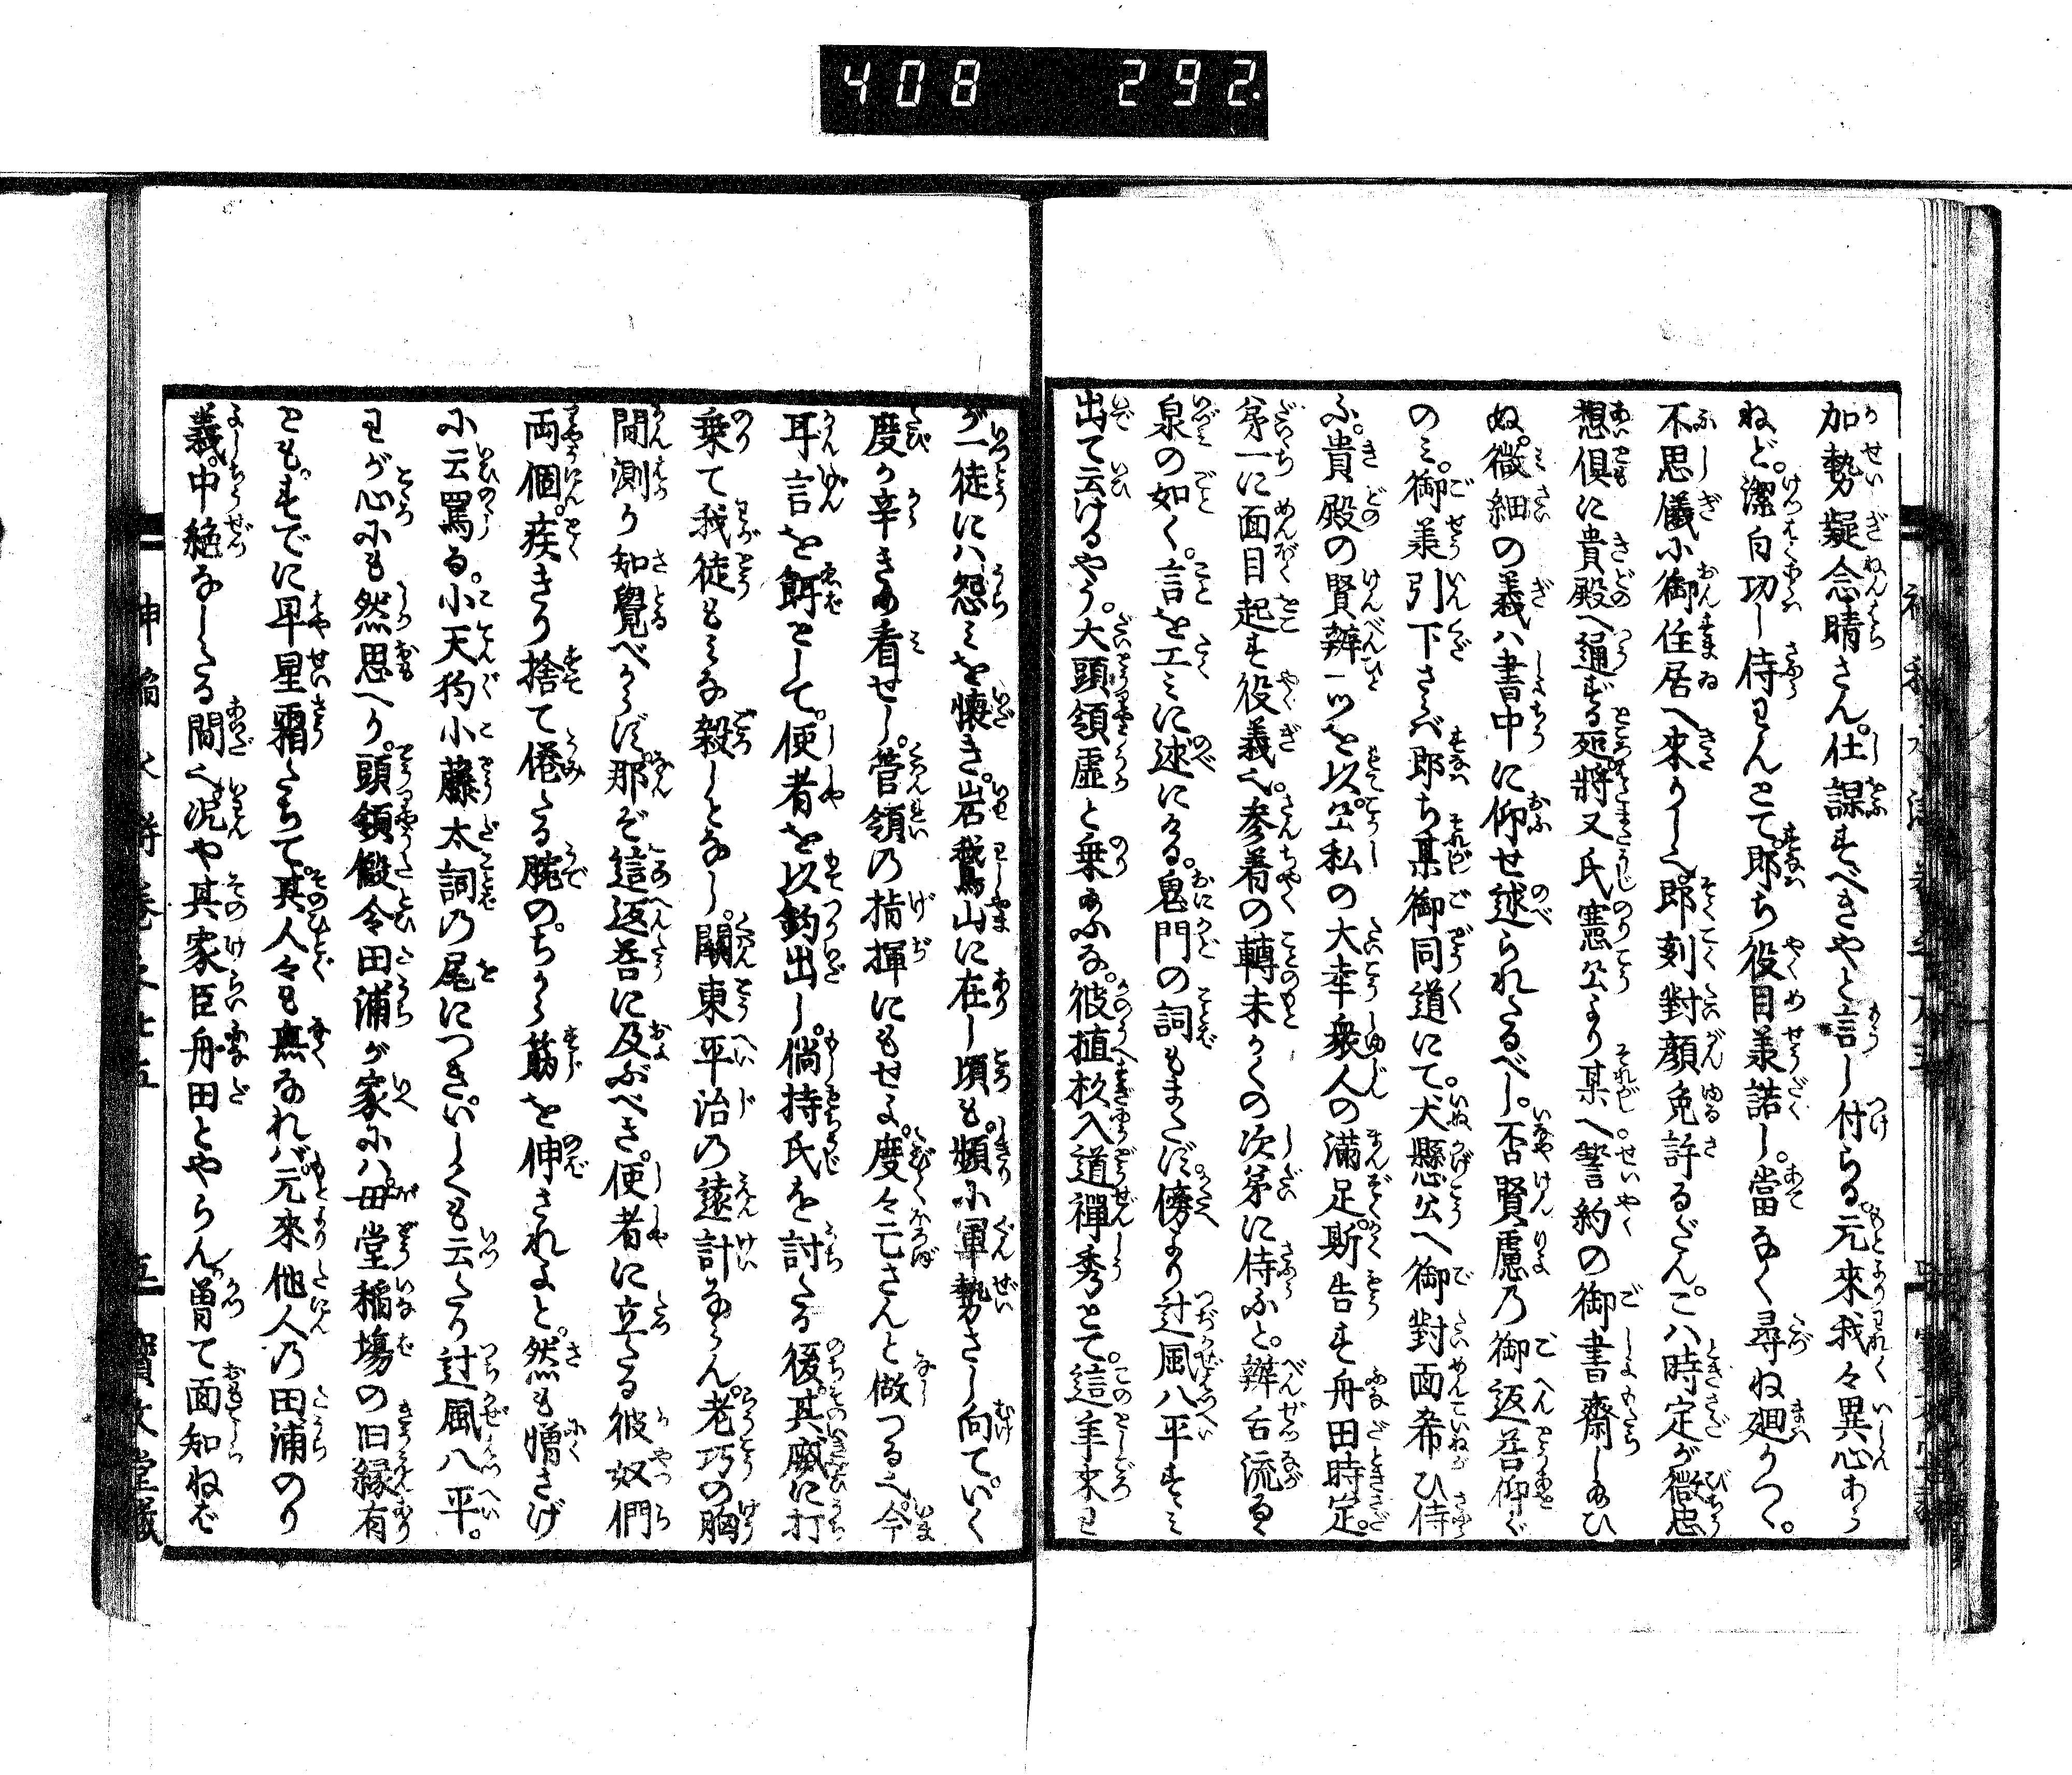 408 292.
加勢疑念晴さん。仕謀すべきやと言し付らる。元來我々異心あら
ねど。潔白功し侍らんとて。郎ち役目羕諾し。當なく尋ね廻りつゝ。
不思儀に御住居へ來りしへ。郎刻對顔免許るだん。こハ時定が微忠
想倶に貴殿へ通ずる処。將又氏憲公より某へ誓約の御書齋し給ひ
ぬ。微細の義ハ書中に仰せ述られたるべし。否賢慮乃御返荅仰ぐ
のミ。御羕引下さらべ郎ち某御同道にて。犬懸公へ御對面希ひ侍
ふ。貴殿の賢辨一ツを以。公私の大幸衆人の滿足。斯告す舟田時定。
苐一に面目起す役義也。参着の轉末かくの次苐に侍ふと。辨舌流るゝ
泉の如く。言を工ミに述にける。鬼門の詞もまたず傍より辻風八平すゝミ
出て云けるやう。大頭領虚と乗給ふな。彼植杉入道禪秀とて。這年来わ
が一徒にハ怨ミを懐き。岩我山に在し頃も。頻に軍勢さし向て。いく
度か辛きめ看せし。管領乃指揮にもせよ。度々亡さんと做つる也。今
耳言を餌として。使者を以釣出し。倘持氏を討たる後。其威に打
乗て我徒もミな殺しとなし。關東平治の遠計ならん。老巧の胸
間測り知覺べからず。那ぞ這返荅に及ぶべき。使者に立たる彼奴們
両個。疾きり捨て倦たる腕の。ちから筋を伸されよと。然も憎さげ
に云罵る。小天狗小藤太詞の尾につき。いしくも云たり辻風八平。
わが心にも然思へり。頭領假令田浦が家にハ母堂稲塲の旧縁有
とも。すでに早星霜たちて。其人々も無なれバ。元來他人乃田浦のり
義。中絶なしたる間也。况や其家臣舟田とやらん。曽て面知ねば
寳文堂藏